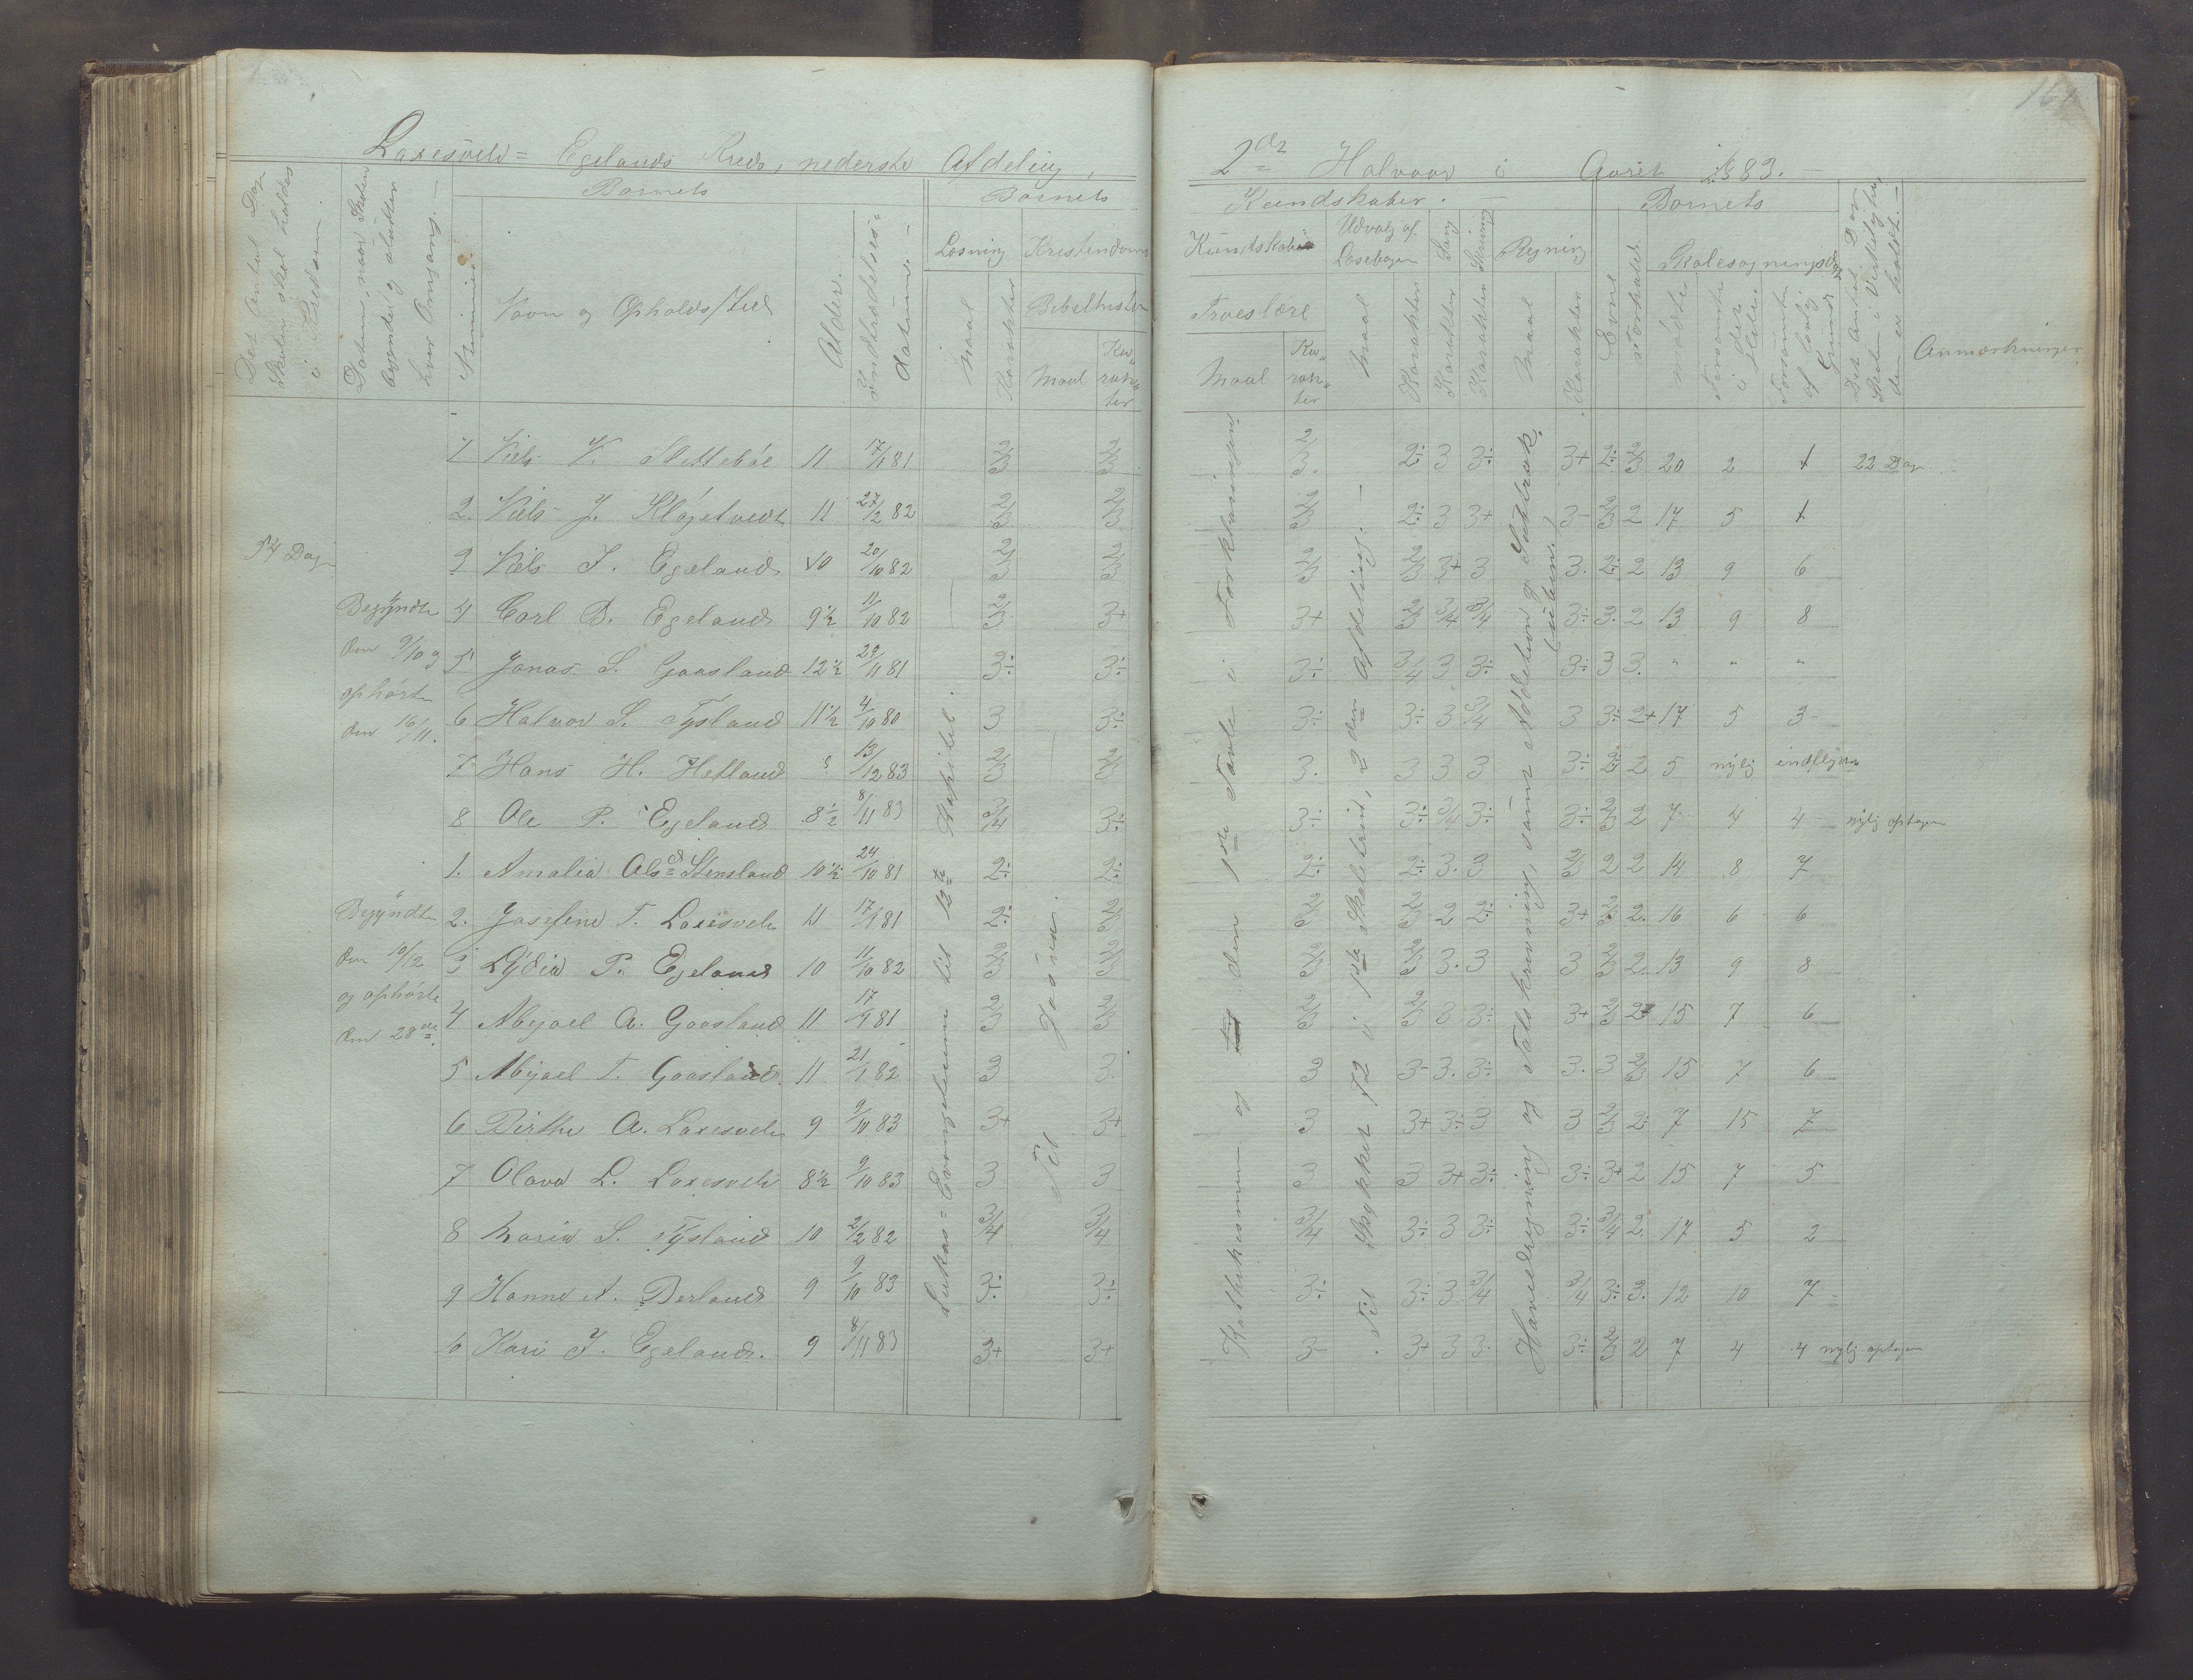 Laxesvelv= Egelands Kreds, nederste Afdeling,
2det Halvaar i Aaret 1883.
Det Antal Dage Skolen skal holdes i Kredsen.
Datum, naar Skolen begynder og slutter hver Omgang. —
Nummer.
Barnets
Navn og Opholds/sted
Alder.
Indtrædelses= datum. —
Barnets
Læsning
Maal
Karakter
Kristendoms
Bibelhistorie
Maal
Karakter
Kundskaber. —
Kundskab
Troeslære
Maal
Karakter
Udvalg af Læsebogen
Maal
Karakter
Sang
Karakter
Skrivning
Karakter
Regning
Maal
Karakter
Barnets
Evne
Forhold.
Skolesøgningsdage
mødte
Forsømte i det Hele.
Forsømte af lovlig Grund
Det Antal Dage Skolen i Virkeligheden er holdt. —
Anmærkninger
54 Dage
Begyndte den 9/10 og ophørte den 16/11.
Begyndte den 10/12 og ophørte den 28de.
Lukas= Evangelium til 12te Kapitel.
Til Josva.
Katekismen og til den 1ste Parte i Forklaringen
Til Stykket 72 i 1ste Skoletrin, 2den Afdeling. —
Hovedregning og Talskrivning, samt Addition og Subtrak(tionen.)
1 Niels N. Slettebøe 11 17/1 81 2/3 2/3 2/3. 2÷ 3 3÷ 3+ 2÷ 2/3 20 2 + 22 Dage
2 Niels J. Kløgetvedt 11 27/2 82 2/3 2/3 2/3 2÷ 3 3+ 3- 2/3 2 17 5 +
3 Niels J. Egeland 10 20/10 82 2/3 2/3 2/3 2/3 3+ 3 3. 2÷ 2 13 9 6
4 Carl D. Egeland 9½ 11/10 82 2/3 3+ 3+ 2/3 3/4 3/4 3÷ 3. 2 13 9 8
5 Jonas S. Gaasland 12½ 29/11 81 3÷ 3÷ 3÷ 3/4 3 3÷ 3÷ 3 3. " " "
6 Halvor S. Tysland 11½ 4/10 80 3 3÷ 3÷ 3÷ 3 3/4 3 3÷ 2+ 17 5 3
7 Hans H. Hetland 13/12 83 2/3 2/3 3. 3 3 3 3÷ 2÷ 2 5 nylig indflyttet
8 Ole P. Egeland 8½ 8/11 83 3/4 3÷ 3÷ 3÷ 3/4 3÷ 3÷ 2/3 2 7 4 4 nylig optagen
1. Amalia Olsd Stensland 10½ 24/10 81 2÷ 2÷ 2÷ 2÷ 3. 3 2/3 2 2 14 8 7
2. Josefine T. Laxesvelv 11 17/1 81 2÷ 2/3 2/3 2/3 2 2÷ 3+ 2/3 2. 16 6 6
3 Lydia P. Egeland 10 11/10 82 2/3 2/3 2/3 2/3 3. 3 3 2/3 2. 13 9 8
4 Abigael A. Gaasland 11 17/1 81 2/3 2/3 2/3 2/3 3 3÷ 3+ 2/3 2 15 7 6
5 Abigael T. Gaasland 11 21/1 82 3 3. 3 3- 3. 3÷ 3. 3 2/3 15 7 6
6 Birthe A. Laxesvelv 9 9/10 83 3+ 3+ 3 3+ 3÷ 3 3 2/3 2 7 15 7
7 Olava L. Laxesvelv 8½ 9/10 83 3 3 3 3 3+ 3÷ 3÷ 3+ 2 15 7 5
8 Maria S. Tysland 10 2/2 82 3/4 3/4 3/4 3÷ 3 3÷ 3÷ 3/4 2. 17 5 2
9 Hanna A. Berland 9 9/10 83 3÷ 3÷ 3÷ 3÷ 3 3/4 3/4 3÷ 3. 12 10 7
10 Kari J. Egeland. 9 8/11 83 3+ 3+ 3- 3+ 3 3. 3÷ 2/3 2 7 4 4 nylig optagen